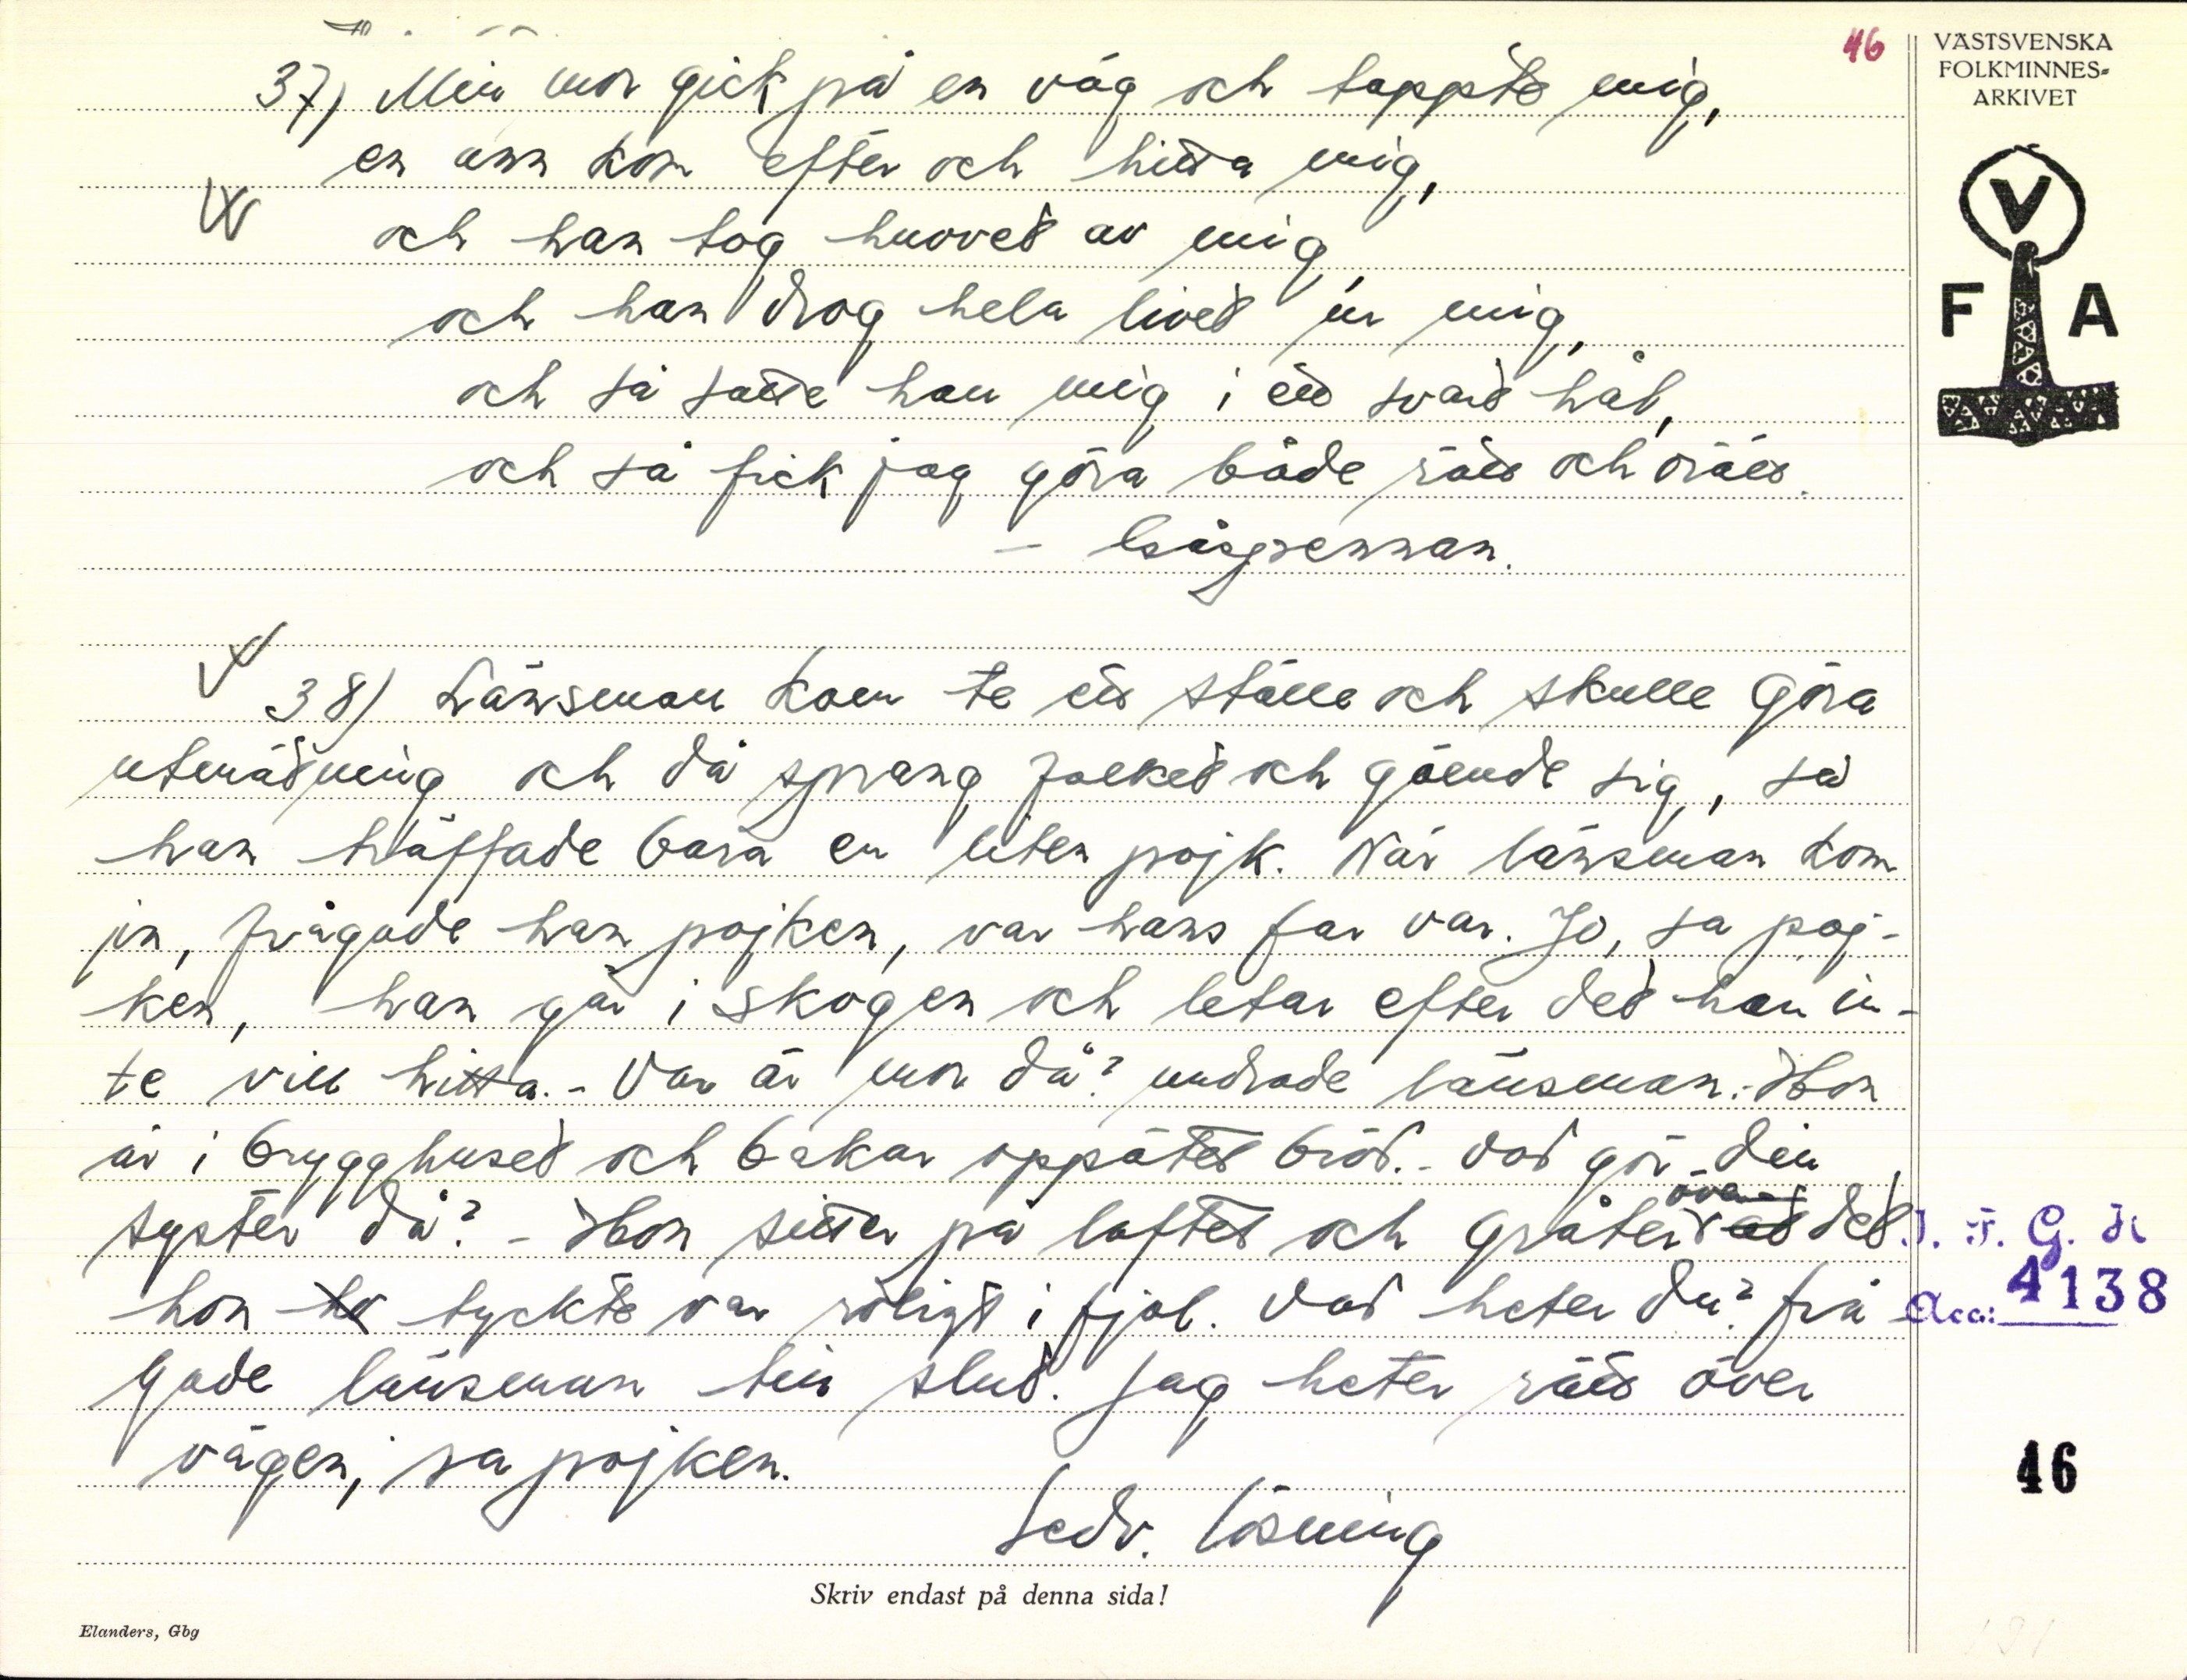 46
VÄSTSVENSKA
FOLKMINNES-
ARKIVET
V
F A
37) Min mor gick på en väg och tappte mig,
en ann kom efter och hitta mig,
och han tog huvvet av mig,
och han drog hela livet ur mig,
och så satte han mig i ett svart hål,
och så fick jag göra både rätt och orätt.
– Gåspennan.
38) Länsman kom te ett ställe och skulle göra
utmätning och då sprang folket och gömde sig, så
han träffade bara en liten pojk. När länsman kom
in, frågade han pojken, var hans far var. Jo, sa poj-
ken, han går i skogen och letar efter det han in-
te vill hitta. - Var är mor då? undrade länsman. - Hon
är i brygghuset och bakar oppätet bröd. - Vad gör din
syster då? - Hon sitter på loftet och gråter över det
hon tyckte var roligt i fjol. Vad heter du? frå
gade länsman till slut. Jag heter rätt över
vägen, sa pojken.
Ledv. lösning
I. F. G. H
Acc: 4138
46
Skriv endast på denna sida!
Elanders, Gbg